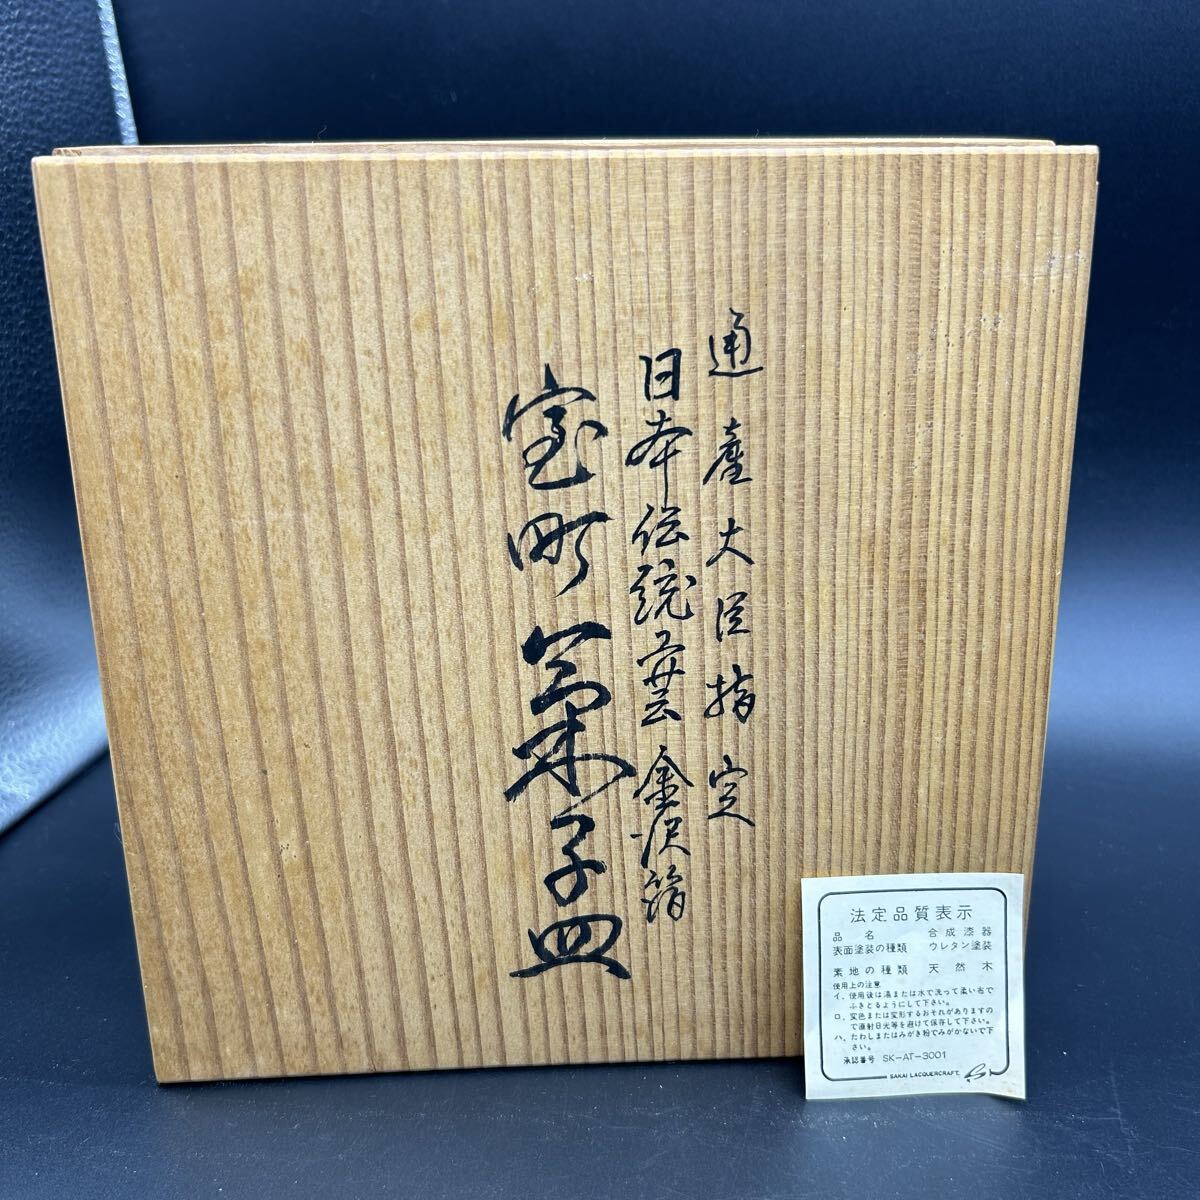 通産大臣指定
日本伝統芸金沢箔
宝町菓子皿
法定品質表示
品名 合成漆器
表面塗装の種類 ウレタン塗装
素地の種類 天然木
使用上の注意
イ、使用後は湯または水で洗って柔い布で
ふきとるようにして下さい。
ロ、変色または変形するおそれがありますの
で直射日光等を避けて保存して下さい。
ハ、たわしまたはみがき粉でみがかないで下
さい。
承認番号 SK-AT-3001
SAKAI LACQUERCRAFT.